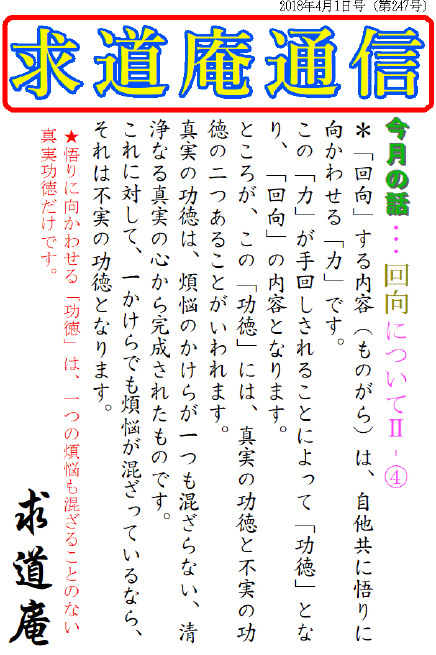 2018年4月1日号（第247号）
求道庵通信
今月の話…回向についてⅡ-④
＊「回向」する内容（ものがら）は、自他共に悟りに
向かわせる「力」です。
この「力」が手回しされることによって「功徳」とな
り、「回向」の内容となります。
ところが、この「功徳」には、真実の功徳と不実の功
徳の二つあることがいわれます。
真実の功徳は、煩悩のかけらが一つも混ざらない、清
浄なる真実の心から完成されたものです。
これに対して、一かけらでも煩悩が混ざっているなら、
それは不実の功徳となります。
★悟りに向かわせる「功徳」は、一つの煩悩も混ざることのない
真実功徳だけです。
求道庵